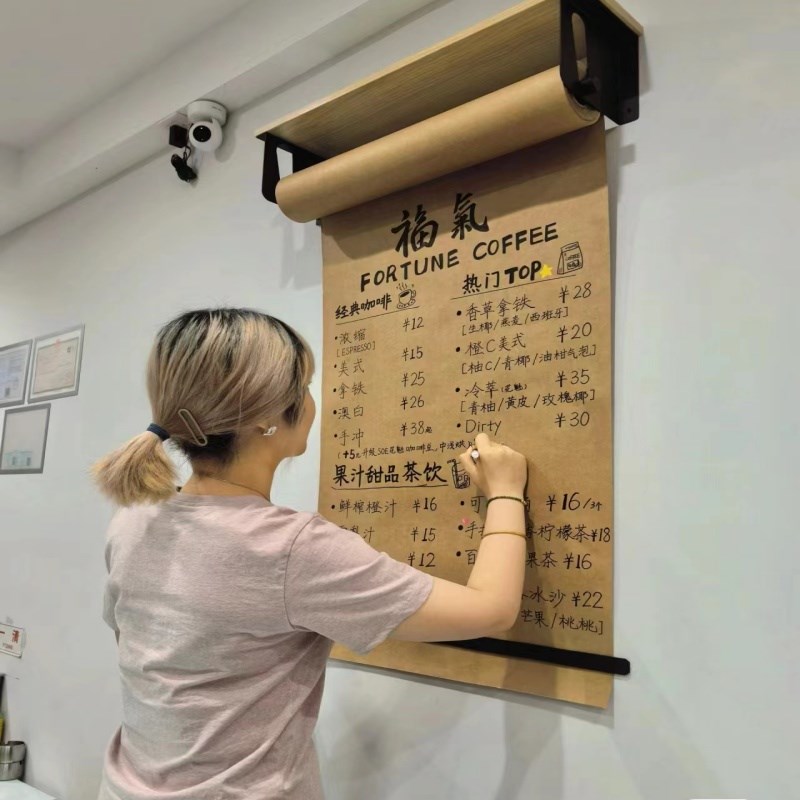 福氣
FORTUNE COFFEE
经典咖啡
•浓缩 ¥12
[ESPRESSO]
•美式 ¥15
•拿铁 ¥25
•澳白 ¥26
•手冲 ¥38起
热门TOP
•香草拿铁 ¥28
[生椰/燕麦/西班牙]
•橙C美式 ¥20
[柚C/青椰/油柑气泡]
•冷萃 ¥35
[青柚/黄皮/玫瑰椰]
•Dirty ¥30
果汁甜品茶饮
•鲜榨橙汁 ¥16
汁 ¥15
¥12
•可 ¥16/个
•手 柠檬茶¥18
•百 果茶 ¥16
冰沙 ¥22
芒果/桃桃]